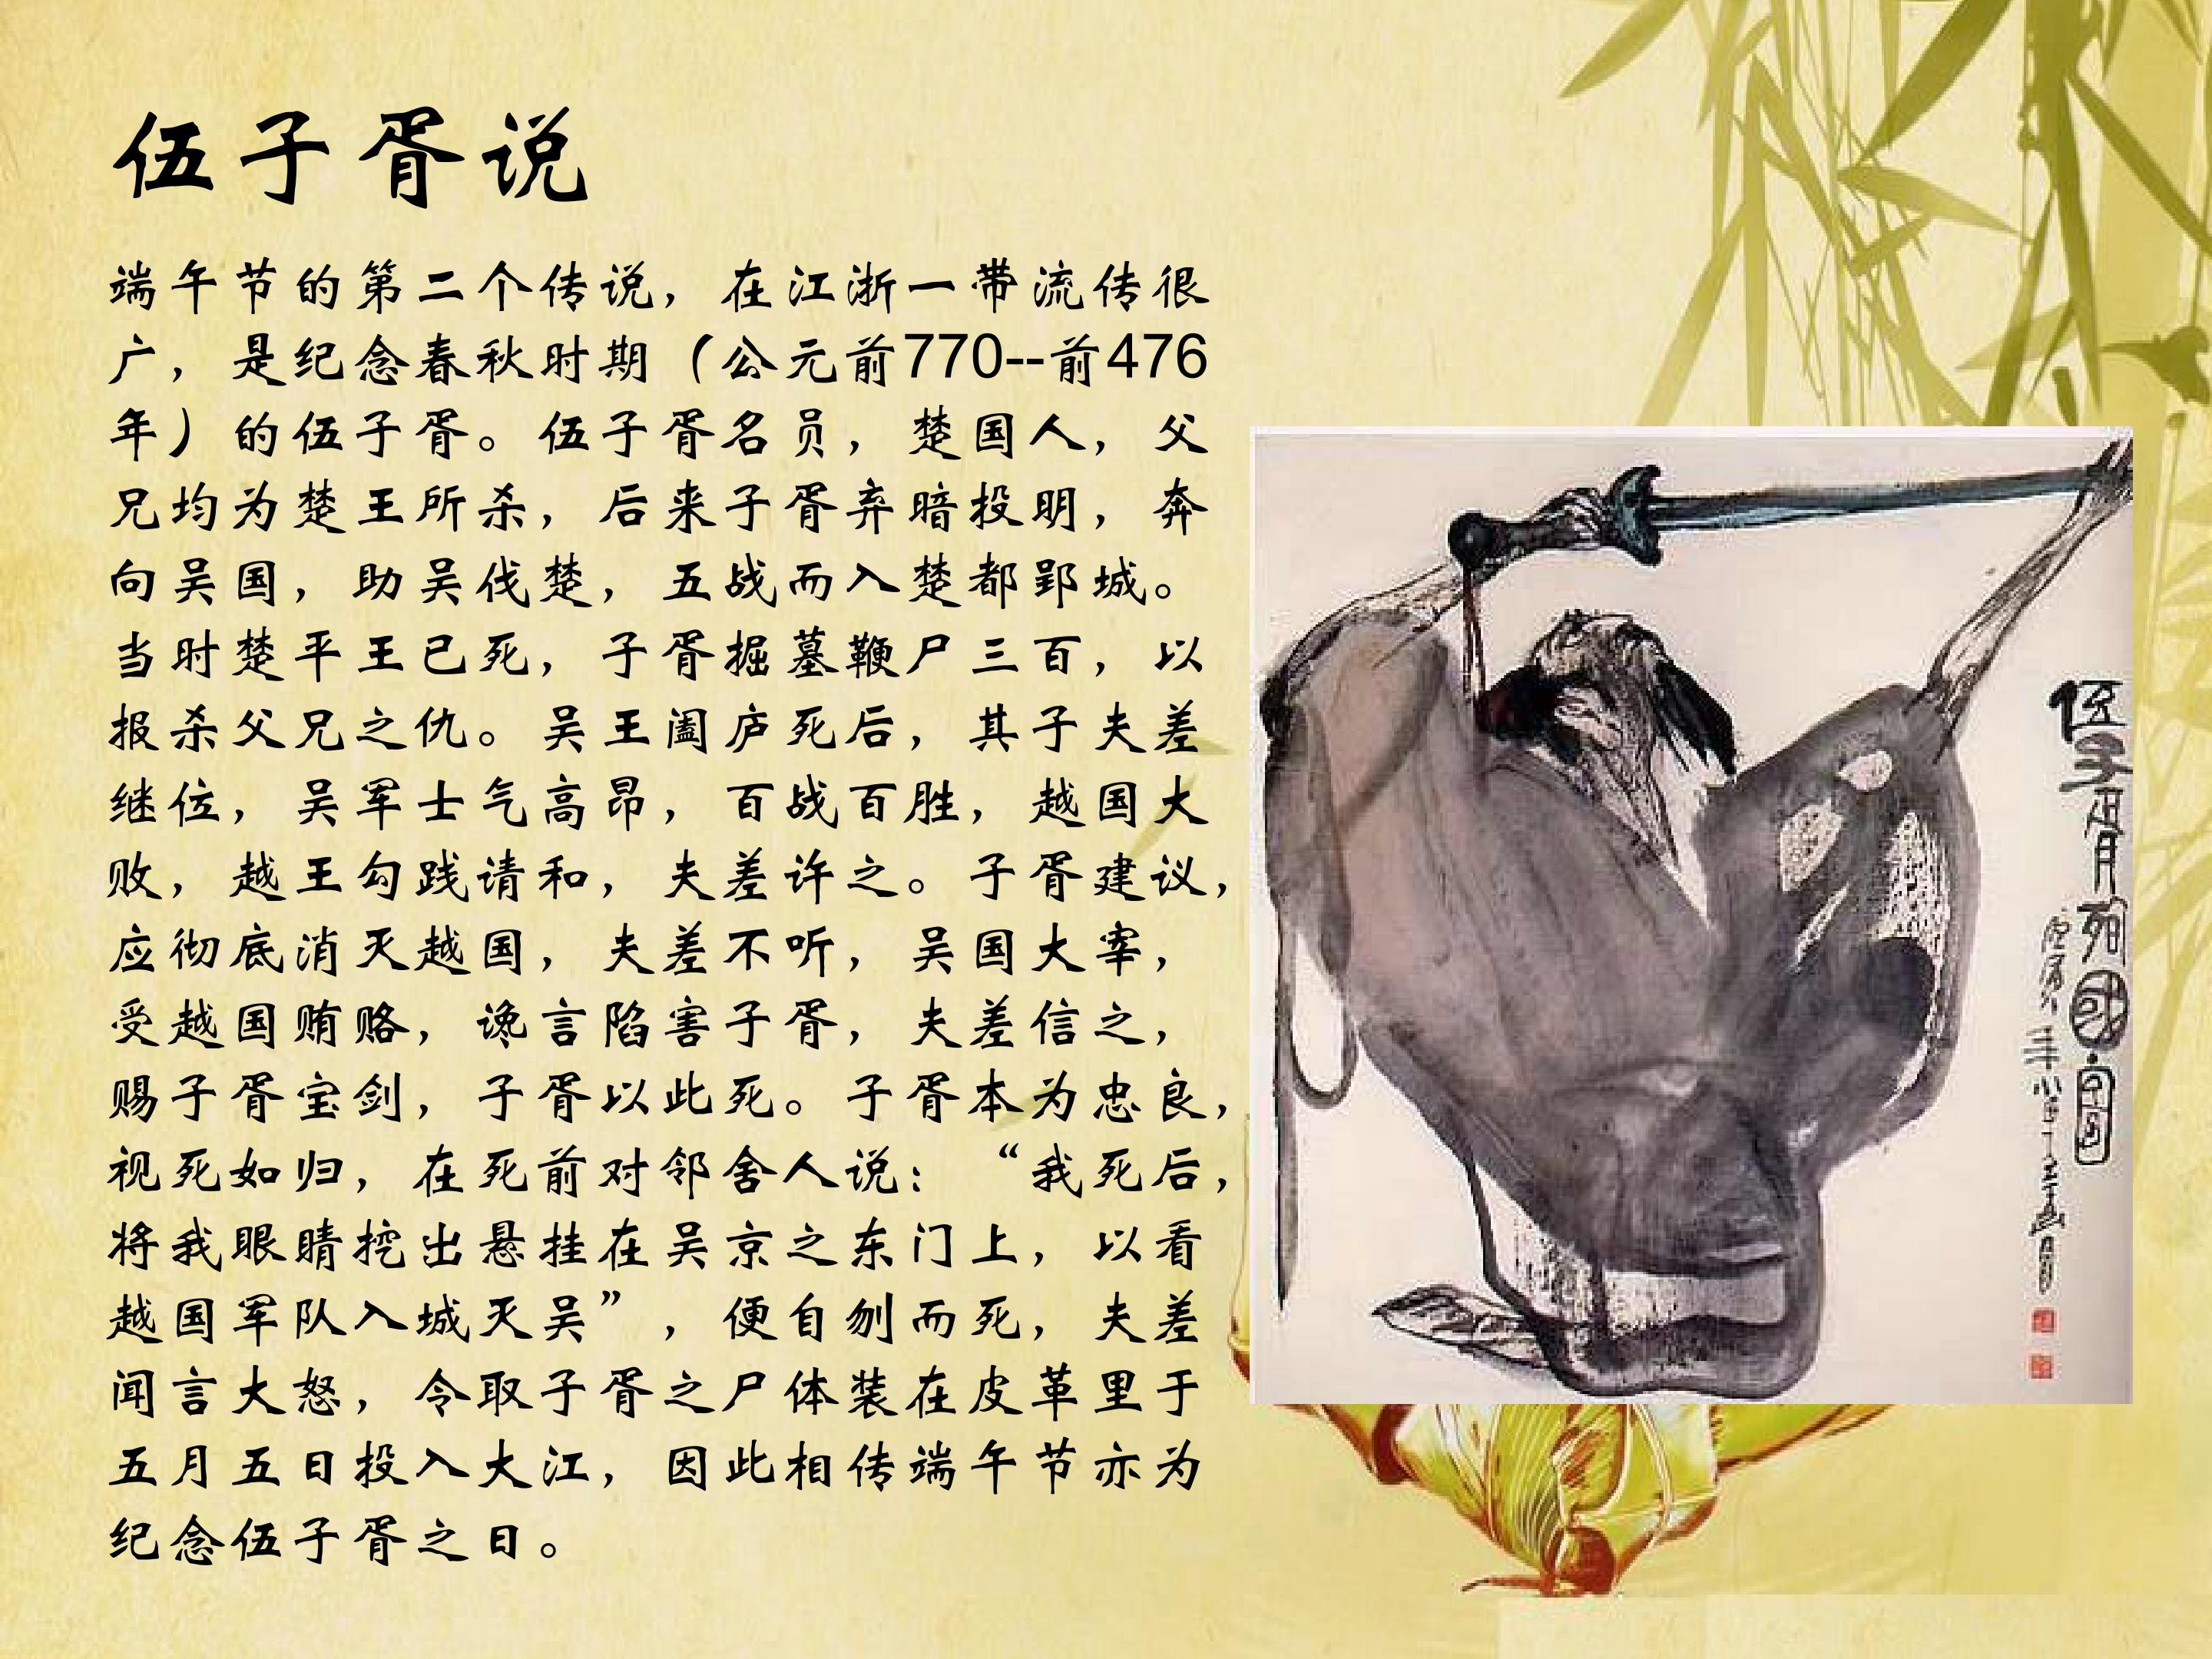 伍子胥说
端午节的第二个传说，在江浙一带流传很
广，是纪念春秋时期（公元前770--前476
年）的伍子胥。伍子胥名员，楚国人，父
兄均为楚王所杀，后来子胥弃暗投明，奔
向吴国，助吴伐楚，五战而入楚都郢城。
当时楚平王已死，子胥掘墓鞭尸三百，以
报杀父兄之仇。吴王阖庐死后，其子夫差
继位，吴军士气高昂，百战百胜，越国大
败，越王勾践请和，夫差许之。子胥建议，
应彻底消灭越国，夫差不听，吴国大宰，
受越国贿赂，谗言陷害子胥，夫差信之，
赐子胥宝剑，子胥以此死。子胥本为忠良，
视死如归，在死前对邻舍人说：“我死后，
将我眼睛挖出悬挂在吴京之东门上，以看
越国军队入城灭吴”，便自刎而死，夫差
闻言大怒，令取子胥之尸体装在皮革里于
五月五日投入大江，因此相传端午节亦为
纪念伍子胥之日。
伍子胥殉國圖